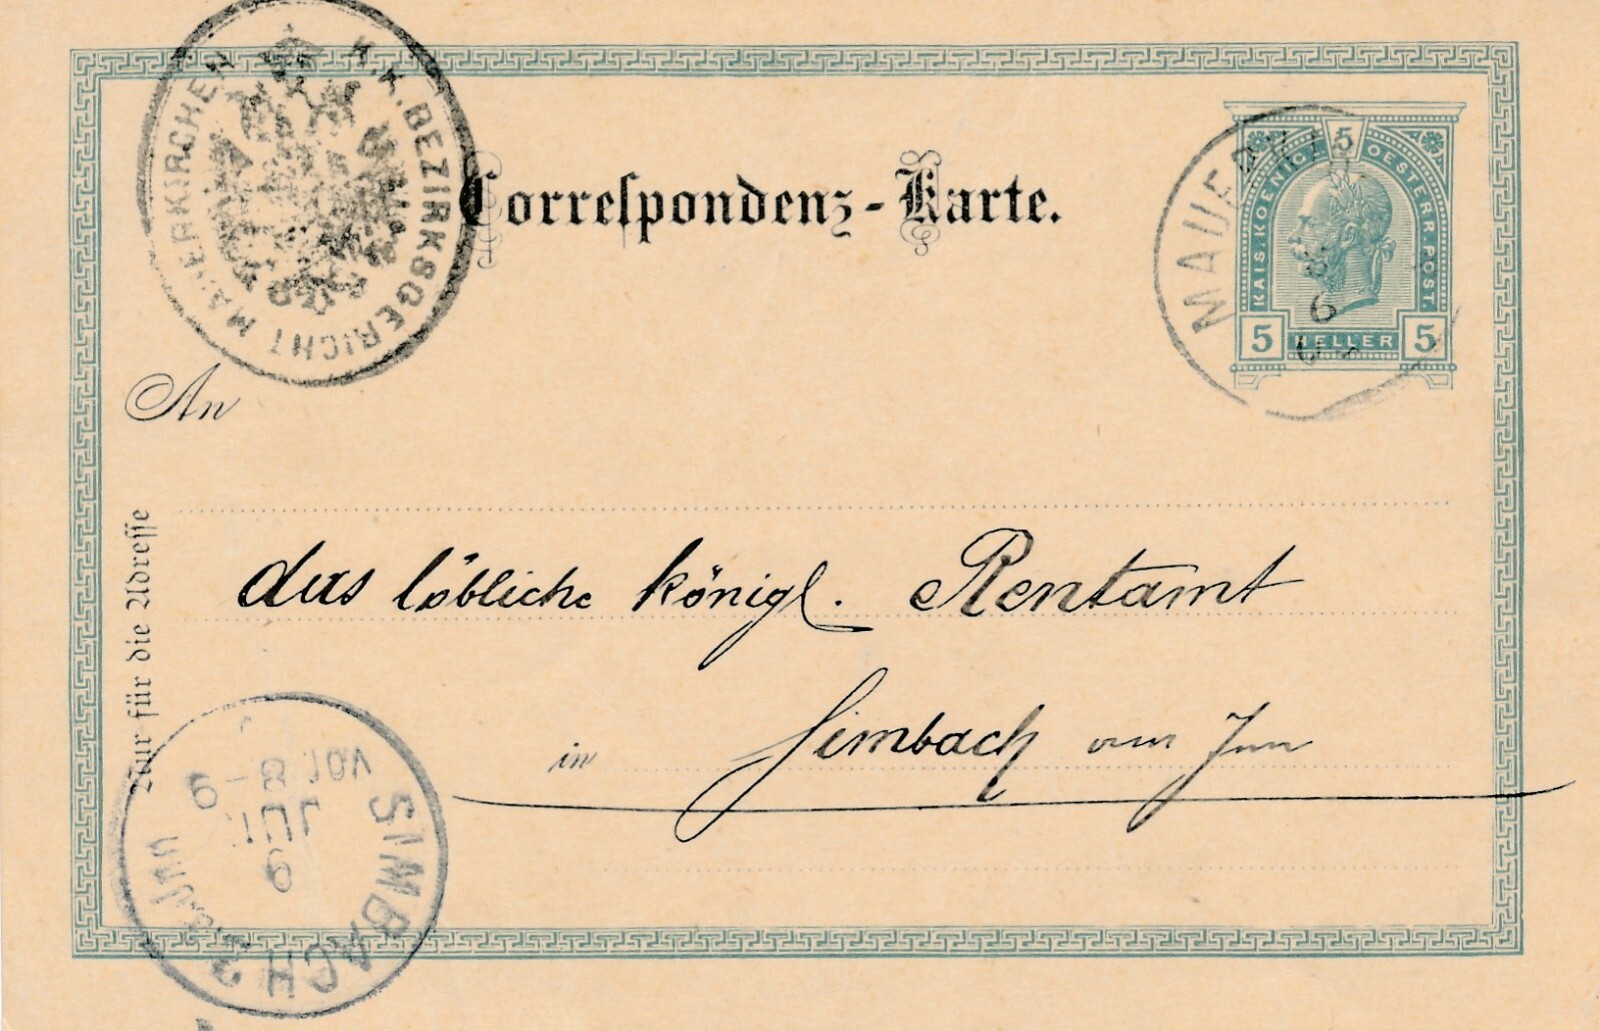 K.K. BEZIRKSGERICHT MAUERKIRCHEN
Correspondenz-Karte.
KAIS. KOENIGL. OESTERR. POST.
5
5 HELLER 5
MAUERKI
6
An
das löbliche königl. Rentamt
in Simbach am Inn
Nur für die Adresse
SIMBACH
VOR 8-9
JUL
9